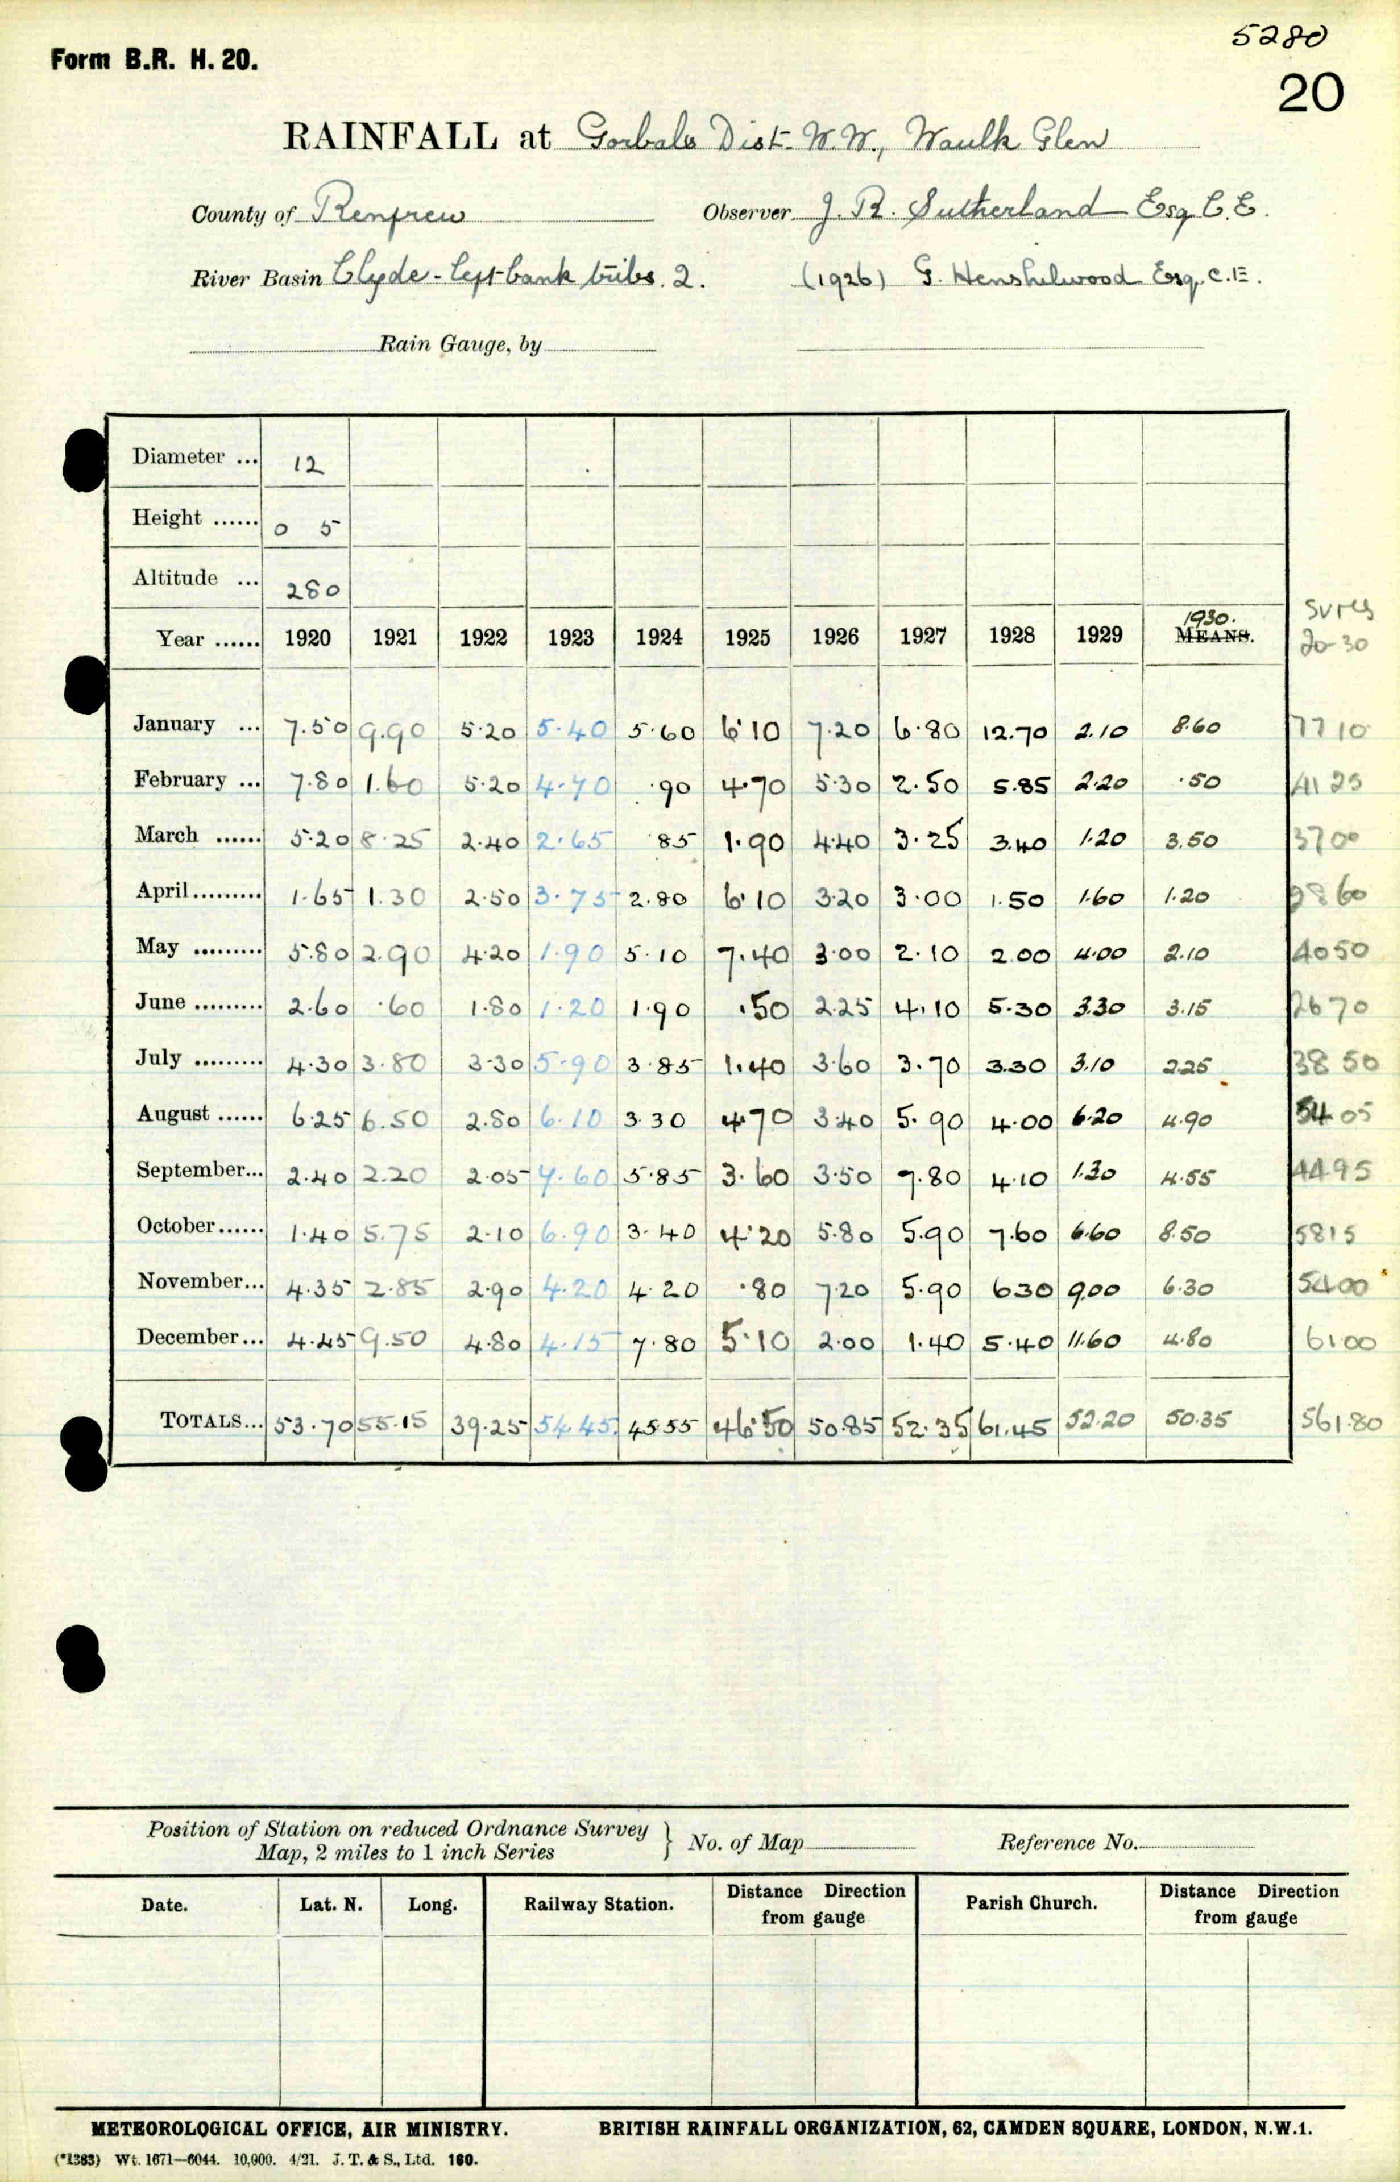 5280
Form B.R. H. 20.
20
RAINFALL at Gorbals Dist. W.W., Waulk Glen
County of Renfrew Observer J. R. Sutherland Esq C.E.
River Basin Clyde - left bank tribs. 2. (1926) G. Henshilwood Esq. C.E.
Rain Gauge, by
Diameter ... 12
Height ...... 0 5
Altitude ... 280
1930.
Year ...... 1920 1921 1922 1923 1924 1925 1926 1927 1928 1929 MEANS. 20-30
January ... 7.50 9.90 5.20 5.40 5.60 6.10 7.20 6.80 12.70 2.10 8.60 77 10
February ... 7.80 1.60 5.20 4.70 .90 4.70 5.30 2.50 5.85 2.20 .50 41 25
March ...... 5.20 8.25 2.40 2.65 85 1.90 4.40 3.25 3.40 1.20 3.50 37 00
April......... 1.65 1.30 2.50 3.75 2.80 6.10 3.20 3.00 1.50 1.60 1.20 28 60
May ......... 5.80 2.90 4.20 1.90 5.10 7.40 3.00 2.10 2.00 4.00 2.10 40 50
June ......... 2.60 .60 1.80 1.20 1.90 .50 2.25 4.10 5.30 3.30 3.15 26 70
July ......... 4.30 3.80 3.30 5.90 3.85 1.40 3.60 3.70 3.30 3.10 2.25 38 50
August ...... 6.25 6.50 2.80 6.10 3.30 4.70 3.40 5.90 4.00 6.20 4.90 54 05
September... 2.40 2.20 2.05 7.60 5.85 3.60 3.50 7.80 4.10 1.30 4.55 44 95
October...... 1.40 5.75 2.10 6.90 3.40 4.20 5.80 5.90 7.60 6.60 8.50 58 15
November... 4.35 2.85 2.90 4.20 4.20 .80 7.20 5.90 6.30 9.00 6.30 54 00
December... 4.45 9.50 4.80 4.15 7.80 5.10 2.00 1.40 5.40 11.60 4.80 61 00
TOTALS... 53.70 55.15 39.25 54.45 45.55 46.50 50.85 52.35 61.45 52.20 50.35 561.80
Position of Station on reduced Ordnance Survey
Map, 2 miles to 1 inch Series } No. of Map Reference No.
Date. Lat. N. Long. Railway Station. Distance Direction from gauge Parish Church. Distance Direction from gauge
METEOROLOGICAL OFFICE, AIR MINISTRY. BRITISH RAINFALL ORGANIZATION, 62, CAMDEN SQUARE, LONDON, N.W.1.
(*1383) Wt. 1671—6044. 10,000. 4/21. J. T. & S., Ltd. 160.